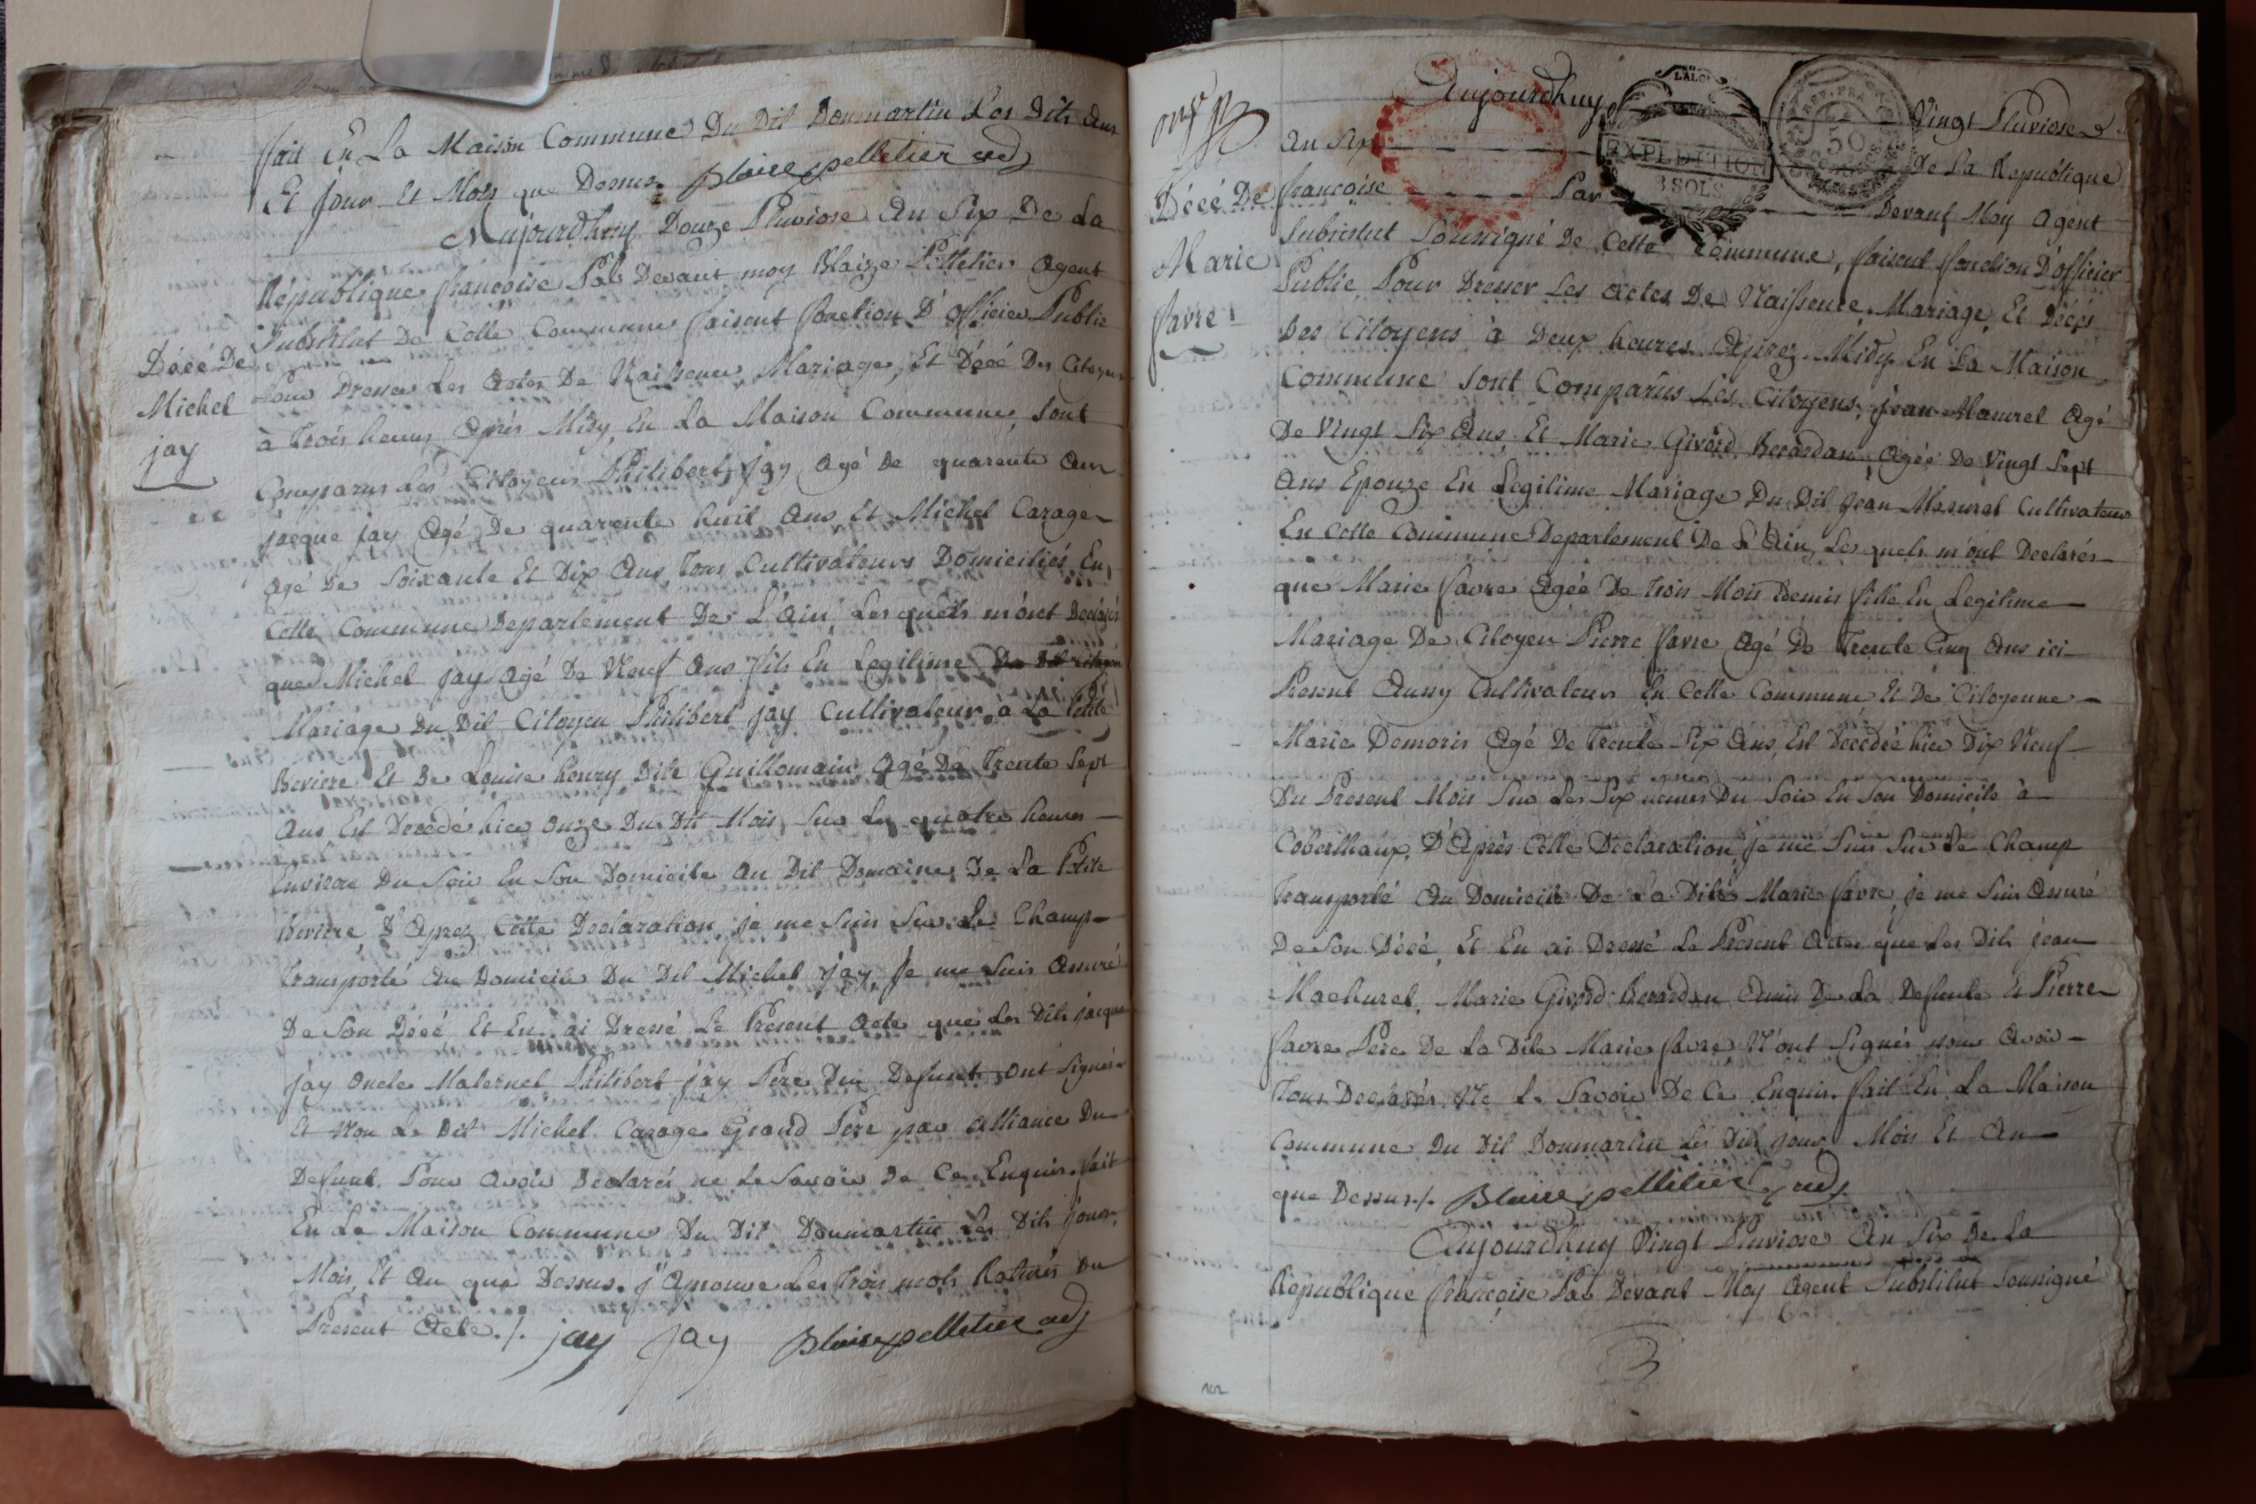 fait En La Maison Commune Du Dit Donmartin Les Dits Ans
Et jour Et Mois que Dessus. Blaise pelletier adj
Aujourdhuy Douze Pluviose An Six De La
Republique françoise Par Devant moy Blaize Pelletier Agent
Substitut De Cette Commune faisant fonction D'officier Public
Décé De
Michel
jay
Pour Dresser Les Actes De Naissence, Mariage, Et Décé Des Citoyens
à Trois heures Après Midy, En La Maison Commune, Sont
Comparus Les Citoyens Philibert jay agé de quarente Ans
jacque jay Agé De quarente huit Ans Et Michel Carage
agé De Soixante Et Dix Ans, Tous Cultivateurs Domiciliés En
Cette Commune Departement De L'Ain, Lesquels m'ont Declarés
que Michel jay agé De Neuf Ans fils En Legitime
Mariage Du Dit Citoyen Philibert jay Cultivateur à La Petite
Beviere Et De Louise henry Dite Guillomain Agé De Trente Sept
Ans Est Decédé hier onze Du Dit Mois, Sur Les quatre heures
Environ Du Soir En Son Domicile Au Dit Domaine De La Petite
beviere, D'Aprez Cette Declaration, je me Suis Sur Le Champ
Transporté Au Domicile Du Dit Michel jay, Je me Suis Assuré
De Son Décé Et En ai Dressé Le Present Acte que Les Dits jacque
jay oncle Maternel Philibert jay Père Du Defunt, ont Signés
Et Non Le Dit Michel Carage Grand Père par alliance Du
Defunt. Pour Avoir Declarés ne Le Savoir De Ce Enquis. fait
En La Maison Commune Du Dit Donmartin Les Dits jours,
Mois Et An que Dessus. j'Aprouve Les Trois mots Raturés Au
Present Acte./. jay jay Blaise pelletier adj
Aujourdhuy Vingt Pluviose
LALOI
EXPEDITION
3 SOLS
REP. FRA
50
An Six De La Republique
françoise Par Devant Moy Agent
Décé De
Marie
favre
Substitut Soussigné De Cette Commune, faisant fonction D'officier
Public, Pour Dresser Les Actes De Naissence, Mariage, Et Décés
Des Citoyens à Deux heures Aprez Midy En La Maison
Commune Sont Comparus Les Citoyens, jean Maurel Agé
De Vingt Six Ans Et Marie Givord Berardan, Agée De Vingt Sept
Ans Epouze En Legitime Mariage Du Dit jean Mesurel Cultivateur
En Cette Commune Departement De L'Ain, Les quels m'ont Declarés
que Marie favre Agée De Trois Mois Demis fille En Legitime
Mariage De Citoyen Pierre favre Agé De Trente Cinq Ans ici
Present Aussy Cultivateur En Cette Commune Et De Citoyenne
Marie Demoris Agé De Trente Six Ans, Est Decédée hier Dix Neuf
Du Present Mois Sur Les Six heures Du Soir En Son Domicile à
Coberthaux. D'Après Cette Declaration, je me Suis Sur Le Champ
Transporté Au Domicile De La Dite Marie favre, je me Suis Assuré
De Son Décé, Et En ai Dressé Le Present Acte que Les Dits jean
Machurel, Marie Givord Berardan Amis De La Defunte Et Pierre
favre Pere De La Dite Marie favre N'ont Signés pour Avoir
Tous Declarés Ne Le Savoir De Ce Enquis. fait En La Maison
Commune Du Dit Donmartin Les Dits jour Mois Et An
que Dessus./. Blaise pelletier adj
Aujourdhuy Vingt Pluviose An Six De La
Republique françoise Par Devant Moy Agent Substitut Soussigné
102